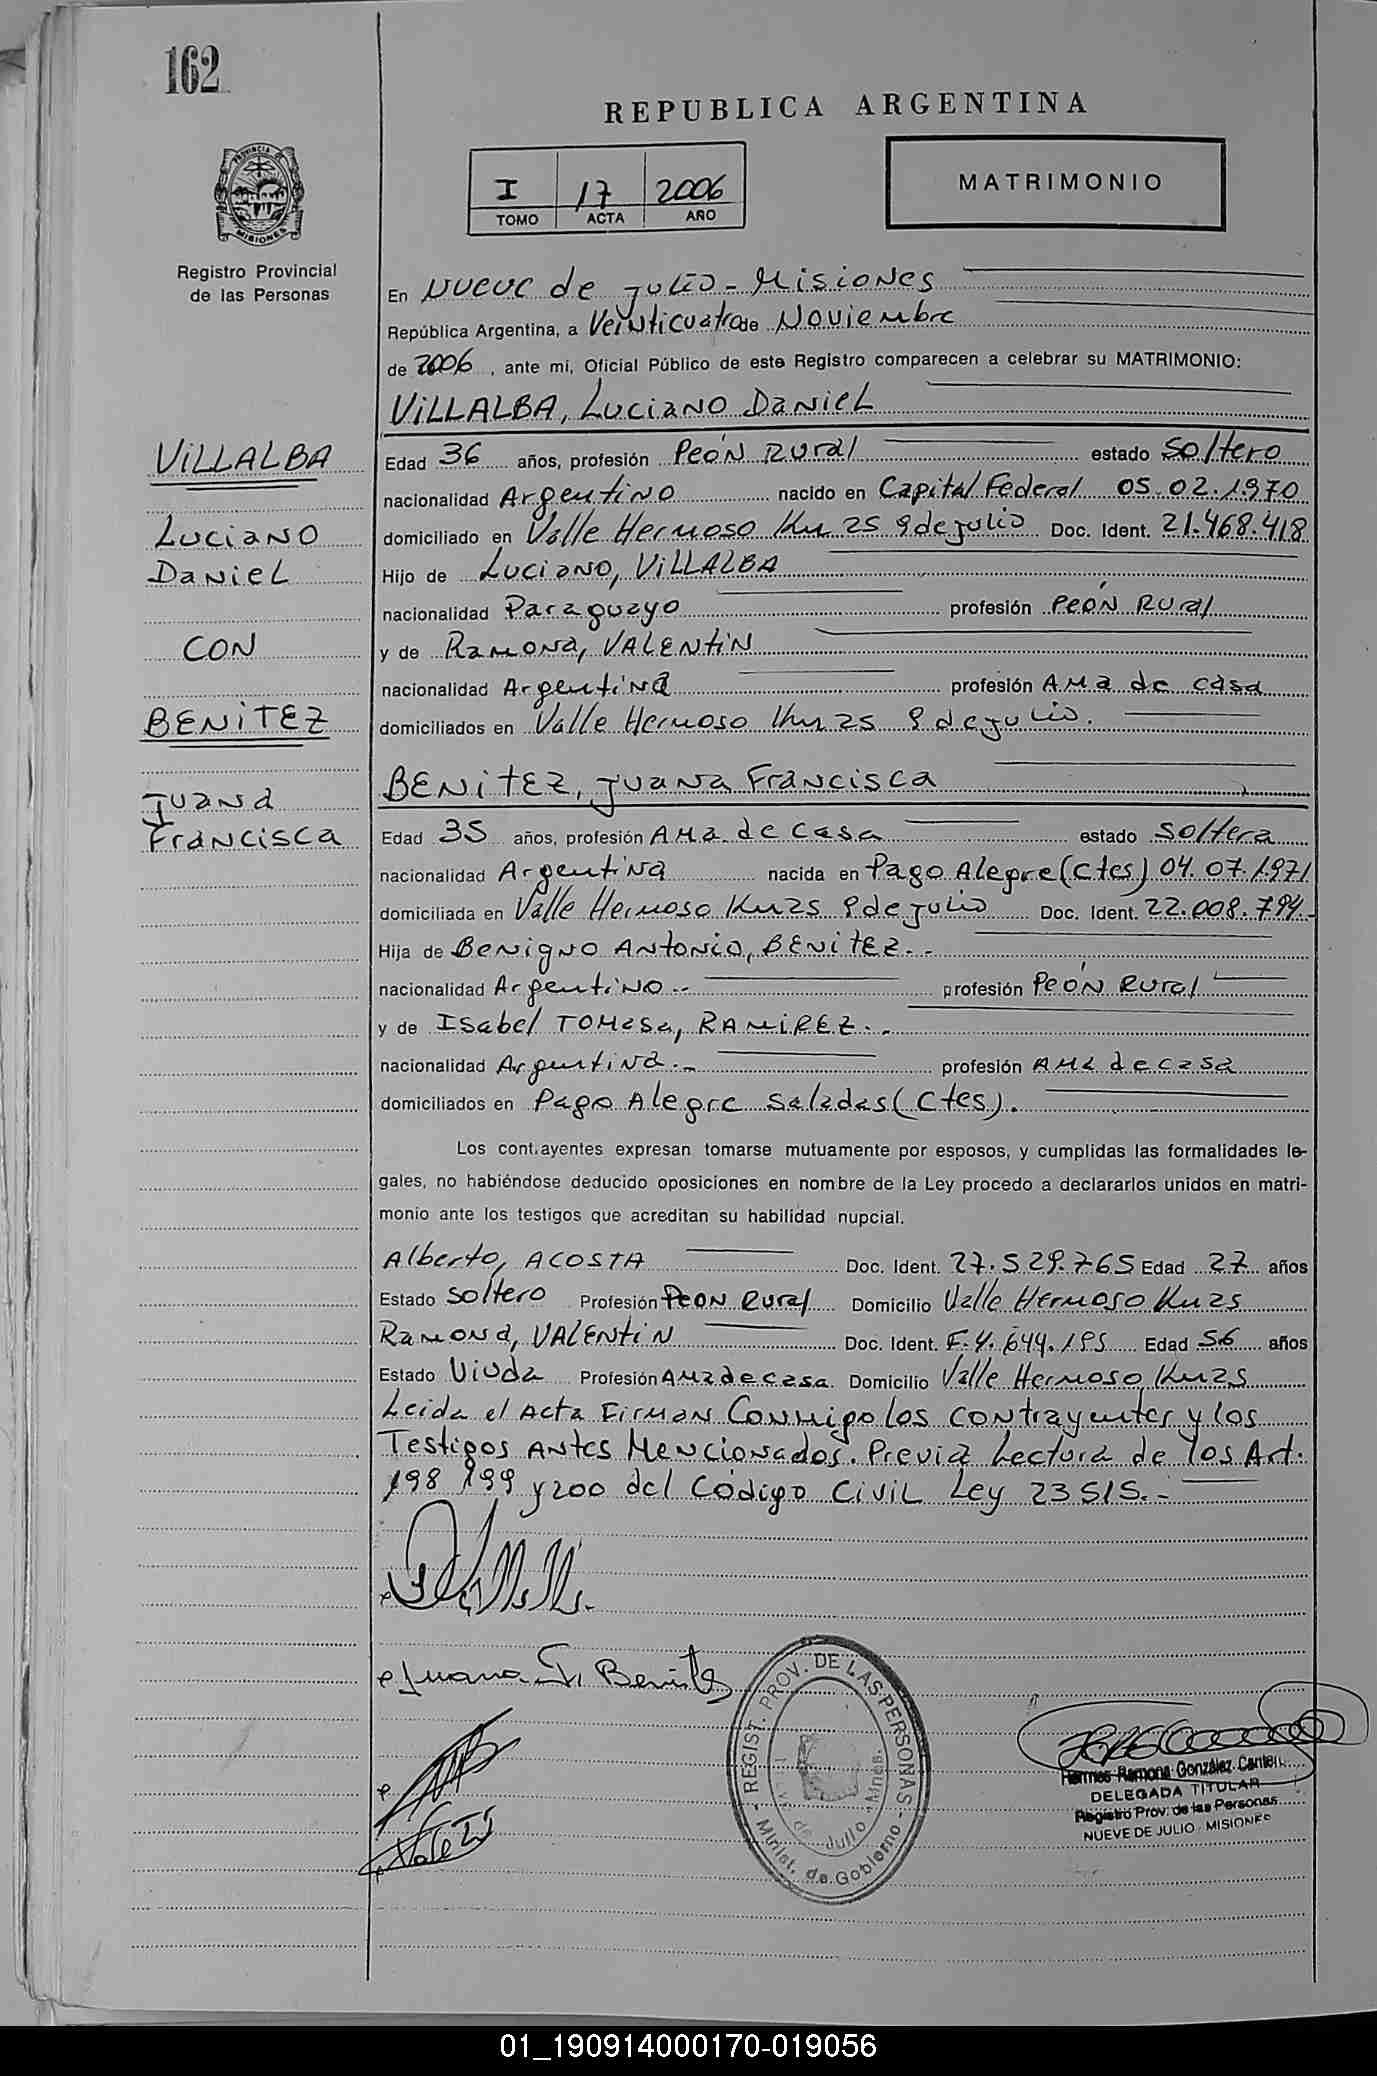 162
REPUBLICA ARGENTINA
I 17 2006
TOMO ACTA AÑO
MATRIMONIO
PROVINCIA DE
MISIONES
Registro Provincial
de las Personas
En NUEVE de Julio - Misiones
República Argentina, a Veinticuatro de Noviembre
de 2006, ante mi, Oficial Público de este Registro comparecen a celebrar su MATRIMONIO:
VILLALBA, Luciano Daniel
VILLALBA
Luciano
Daniel
CON
BENITEZ
Juana
Francisca
Edad 36 años, profesión Peón Rural estado Soltero
nacionalidad Argentino nacido en Capital Federal 05.02.1970
domiciliado en Valle Hermoso Km 25 9 de Julio Doc. Ident. 21.468.418
Hijo de Luciano, VILLALBA
nacionalidad Paraguayo profesión Peón Rural
y de Ramona, VALENTIN
nacionalidad Argentina profesión Ama de casa
domiciliados en Valle Hermoso Km 25 9 de Julio.
BENITEZ, Juana Francisca
Edad 35 años, profesión Ama de Casa estado Soltera
nacionalidad Argentina nacida en Pago Alegre (Ctes) 04.07.1971
domiciliada en Valle Hermoso Km 25 9 de Julio Doc. Ident. 22.008.794.-
Hija de Benigno Antonio, BENITEZ.-
nacionalidad Argentino.- profesión Peón Rural
y de Isabel Tomasa, RAMIREZ.-
nacionalidad Argentina.- profesión Ama de casa
domiciliados en Pago Alegre Saladas (Ctes).
Los contrayentes expresan tomarse mutuamente por esposos, y cumplidas las formalidades le-
gales, no habiéndose deducido oposiciones en nombre de la Ley procedo a declararlos unidos en matri-
monio ante los testigos que acreditan su habilidad nupcial.
Alberto, ACOSTA Doc. Ident. 27.529.765 Edad 27 años
Estado Soltero Profesión Peon Rural Domicilio Valle Hermoso Km 25
Ramona, VALENTIN Doc. Ident. F.4.644.195 Edad 56 años
Estado Viuda Profesión Ama de casa Domicilio Valle Hermoso, Km 25
Leida el Acta Firman Conmigo los contrayentes y los
Testigos Antes Mencionados. Previa Lectura de los Art.
198 199 y 200 del Código Civil Ley 23515.-
Juana F. Benitez
REGIST. PROV. DE LAS PERSONAS
Minist. de Gobierno
de Julio - Mnes.
Hermes Ramona González
DELEGADA TITULAR
Registro Prov. de las Personas
NUEVE DE JULIO - MISIONES
01_190914000170-019056